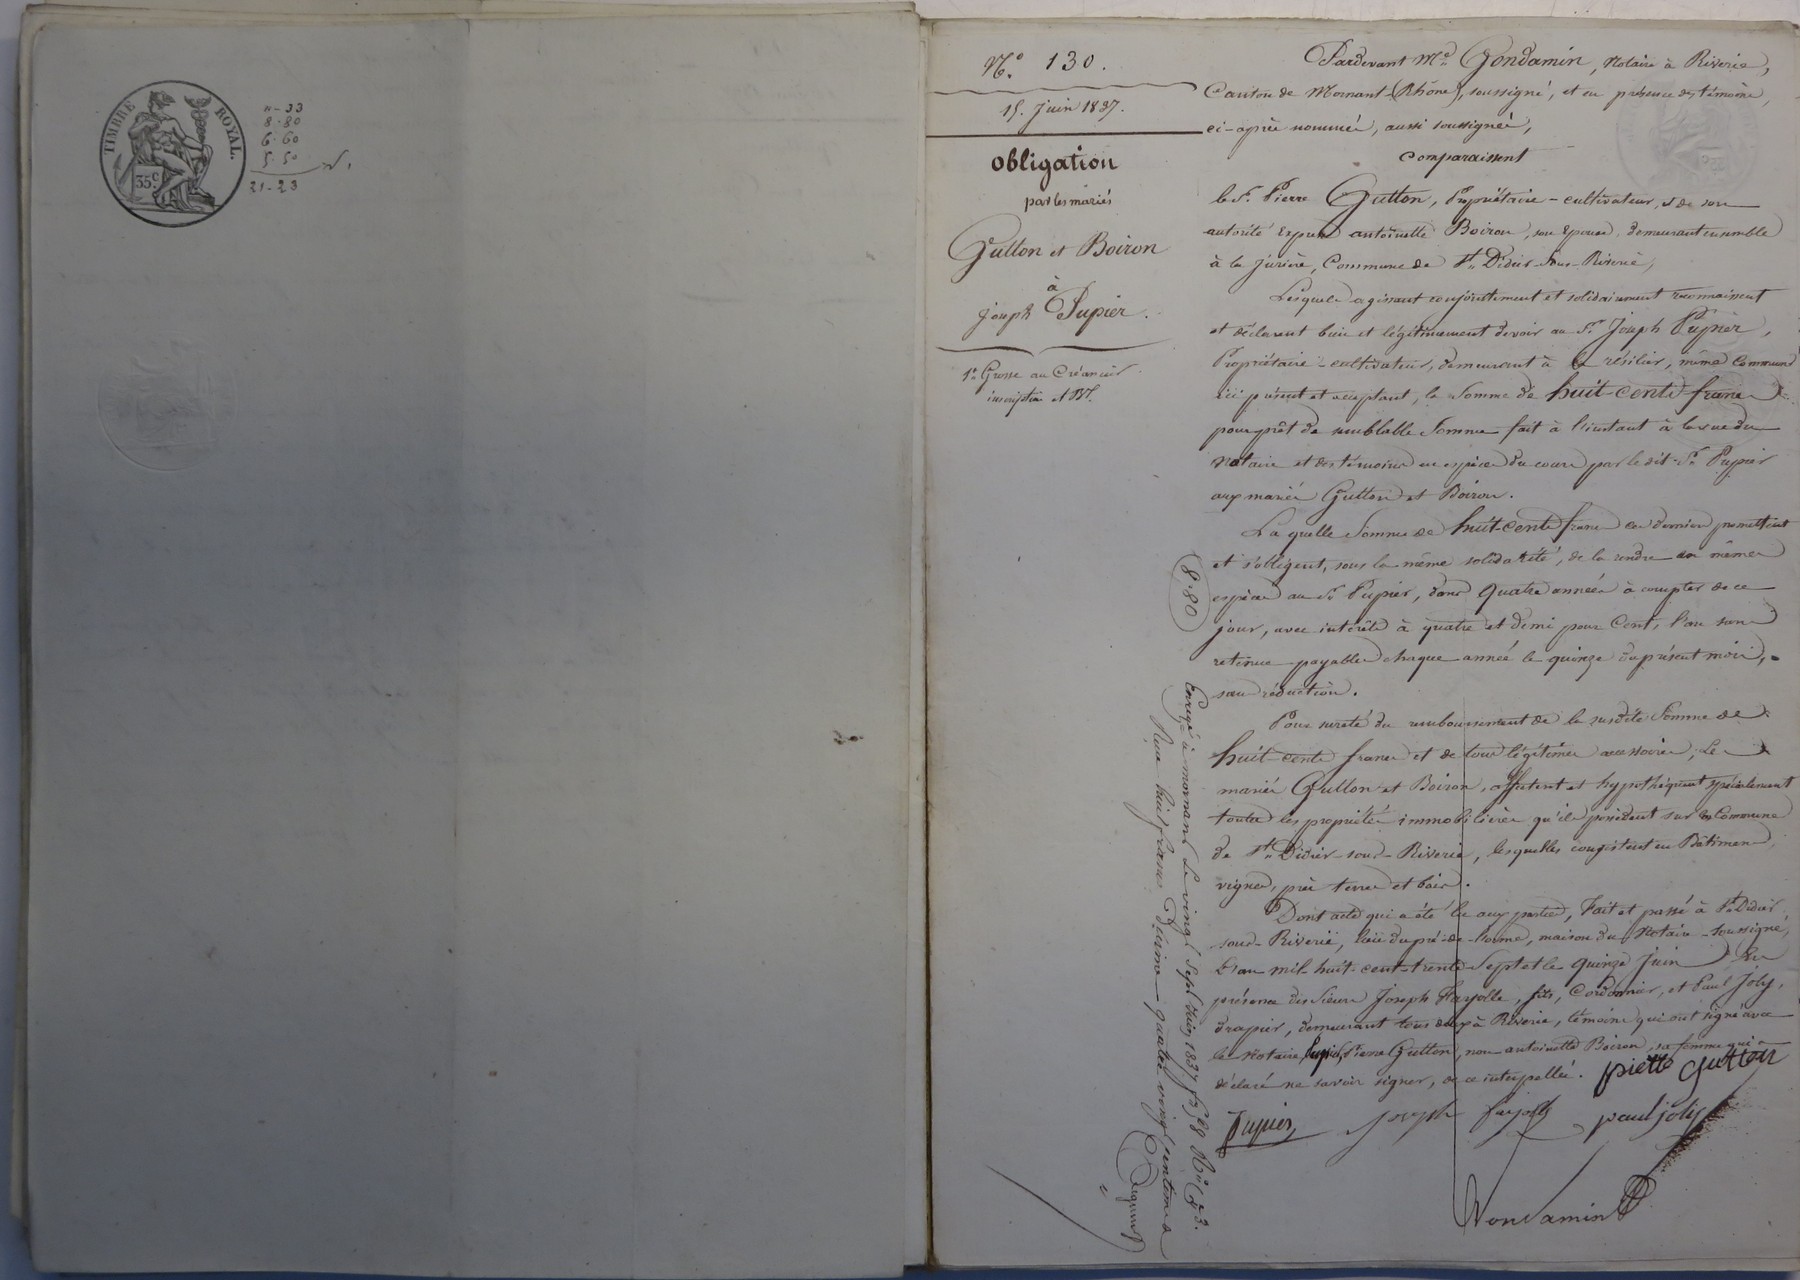 TIMBRE ROYAL.
35c
11-33
8.80
6.60
5.50
21-23
N.° 130.
15. Juin 1837.
obligation
par les mariés
Gutton et Boiron
à
Joseph Pupier.
1e Grosse au Créancier
inscription
Pardevant Me Gondamin, Notaire à Riverie,
Canton de Mornant (Rhône), soussigné, et en présence des témoins,
ci-après nommés, aussi soussignés,
comparaissent
le Sr. Pierre Gutton, Propriétaire-cultivateur, & de son
autorité Expresse antoinette Boiron, son épouse, demeurant ensemble
à la Commune de St. Didier-Sous-Riverie,
Lesquels agissant conjointement et solidairement reconnaissent
et déclarent bien et légitimement devoir au Sr. Joseph Pupier,
Propriétaire-cultivateur, demeurant à même Commune
ici présent et acceptant, la Somme de huit-cents francs
pour prêt de semblable Somme fait à l'instant à la vue du
Notaire et des témoins en espèces du cours par le dit Sr. Pupier
aux mariés Gutton et Boiron.
La quelle Somme de huit-cents francs ces derniers promettent
et s'obligent, sous la même solidarité, de la rendre en mêmes
espèces au Sr. Pupier, dans quatre années à compter de ce
jour, avec intérêts à quatre et demi pour Cent, l'an sans
retenue payables chaque année le quinze du présent mois,
sans réduction.
Pour sureté du remboursement de la susdite Somme de
huit-cents francs et de tous légitimes accessoires, Les
mariés Gutton et Boiron, affectent et hypothèquent spécialement
toutes les propriétés immobilières qu'ils possèdent sur la Commune
de St. Didier-sous-Riverie, lesquelles consistent en Bâtimens,
vignes, prés terres et bois.
Dont acte qui a été lu aux parties, Fait et passé à St. Didier
sous-Riverie, lieu du pré-de-lorme, maison du Notaire soussigné,
L'an mil-huit-cent-trente-Sept et le quinze Juin En
présence des Sieurs Joseph Fayolle, fils, Cordonnier, et Paul Joly,
drapier, demeurant tous deux à Riverie, témoins qui ont signé avec
le Notaire, Pupier, Pierre Gutton, non antoinette Boiron, sa femme qui a
déclaré ne savoir signer, de ce interpellée.
pierre gutton
Pupier
joseph fayolle
paul joly
Gondamin
8.80
Enregé à mornant Le vingt Sept Juin 1837 fo 68 Ro C 3.
Reçu huit francs Décime quatre vingt centimes